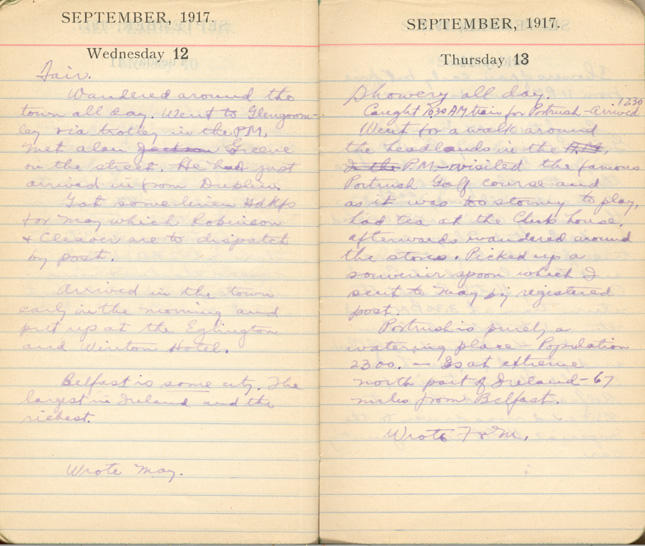 SEPTEMBER, 1917.
Wednesday 12
Fair.
Wandered around the
town all day. Went to Glengorm-
ley via trolley in the P.M.
Met Alan Jackson Greene
on the street. He had just
arrived in from Dublin.
Got some linen Hdkfs
for May which Robinson
& Cleaver are to dispatch
by post.
Arrived in the town
early in the morning and
put up at the Eglington
and Winton Hotel.
Belfast is some city. The
largest in Ireland and the
richest.
Wrote May.
SEPTEMBER, 1917.
Thursday 13
Showery all day.
Caught 10.30 AM train for Portrush - Arrived 12.30
Went for a walk around
the headlands in the A.M.
In the P.M. - visited the famous
Portrush Golf course and
as it was too stormy to play,
had tea at the Club house,
afterwards wandered around
the stores. Picked up a
souvenir spoon which I
sent to May by registered
post.
Portrush is purely a
watering place - Population
2300. - Is at extreme
north part of Ireland - 67
miles from Belfast.
Wrote F & M.